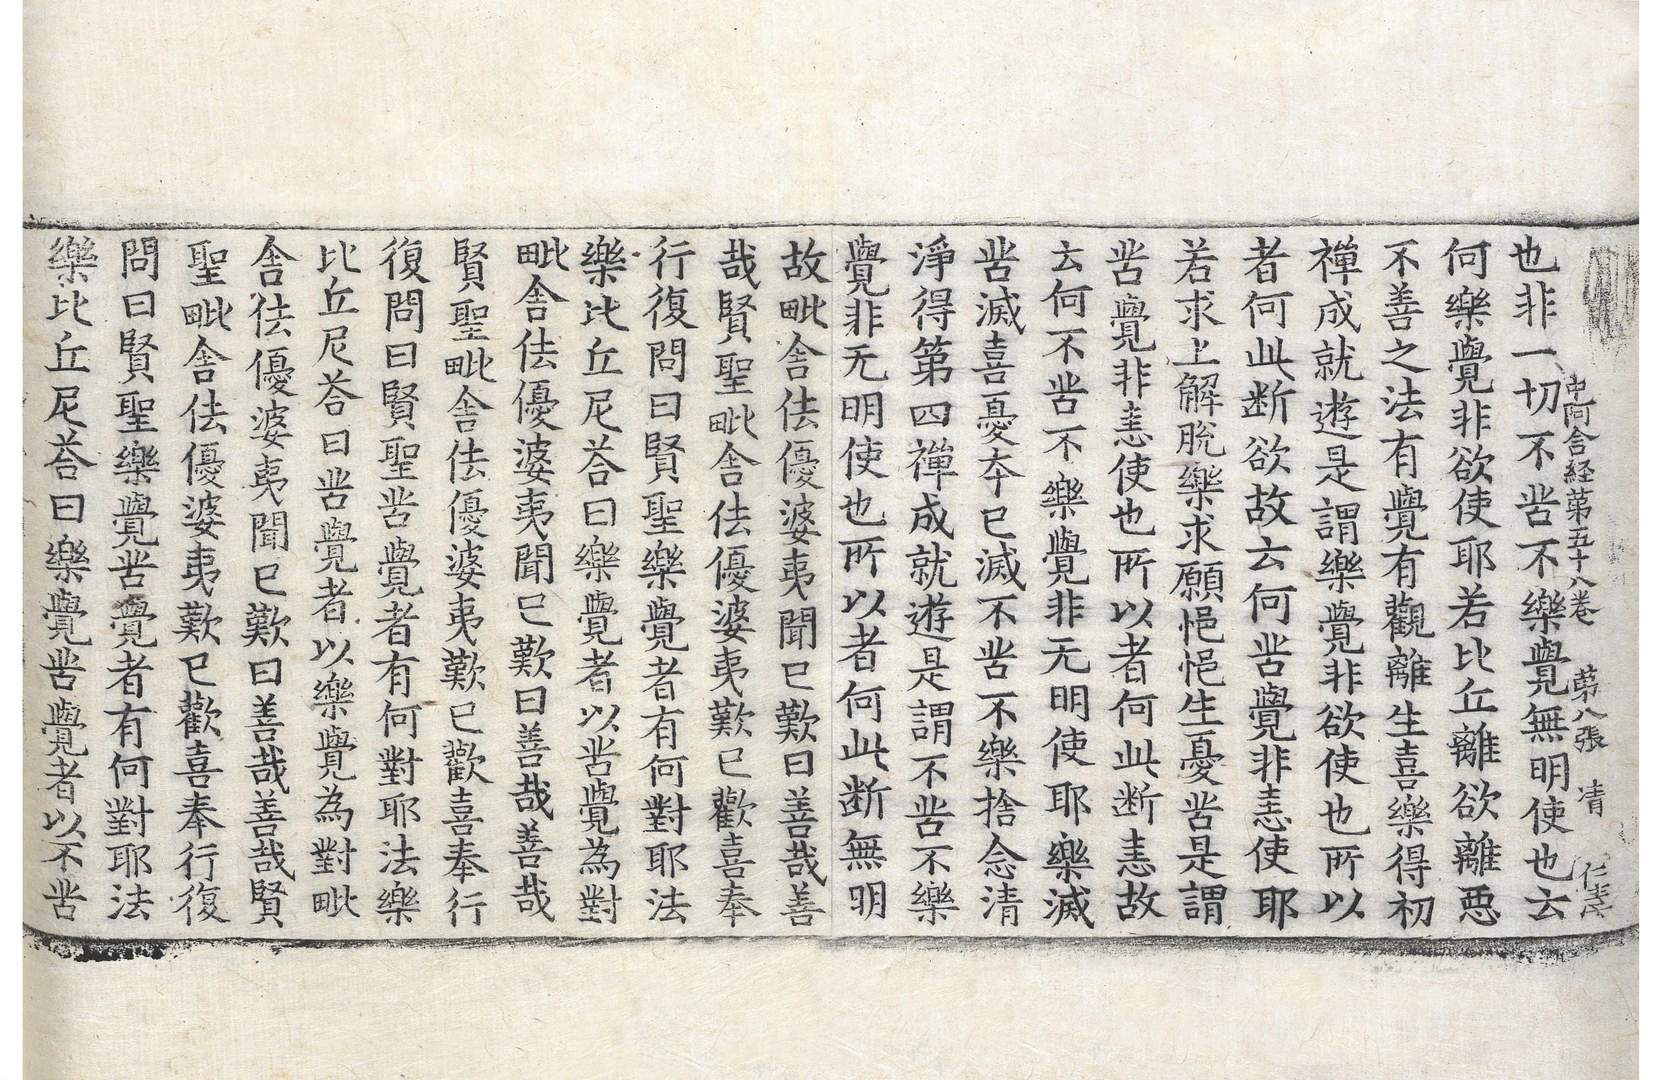 中阿含経第五十八卷 第八張 清
也非一切不苦不樂覺無明使也云
何樂覺非欲使耶若比丘離欲離惡
不善之法有覺有觀離生喜樂得初
禪成就遊是謂樂覺非欲使也所以
者何此断欲故云何苦覺非恚使耶
若求上解脫樂求願悒悒生憂苦是謂
苦覺非恚使也所以者何此断恚故
云何不苦不樂覺非无明使耶樂滅
苦滅喜憂夲已滅不苦不樂捨念清
淨得第四禪成就遊是謂不苦不樂
覺非无明使也所以者何此断無明
故毗舍佉優婆夷聞已歎曰善哉善
哉賢聖毗舍佉優婆夷歎已歡喜奉
行復問曰賢聖樂覺者有何對耶法
樂比丘尼荅曰樂覺者以苦覺為對
毗舍佉優婆夷聞已歎曰善哉善哉
賢聖毗舍佉優婆夷歎已歡喜奉行
復問曰賢聖苦覺者有何對耶法樂
比丘尼荅曰苦覺者以樂覺為對毗
舍佉優婆夷聞已歎曰善哉善哉賢
聖毗舍佉優婆夷歎已歡喜奉行復
問曰賢聖樂覺苦覺者有何對耶法
樂比丘尼荅曰樂覺苦覺者以不苦